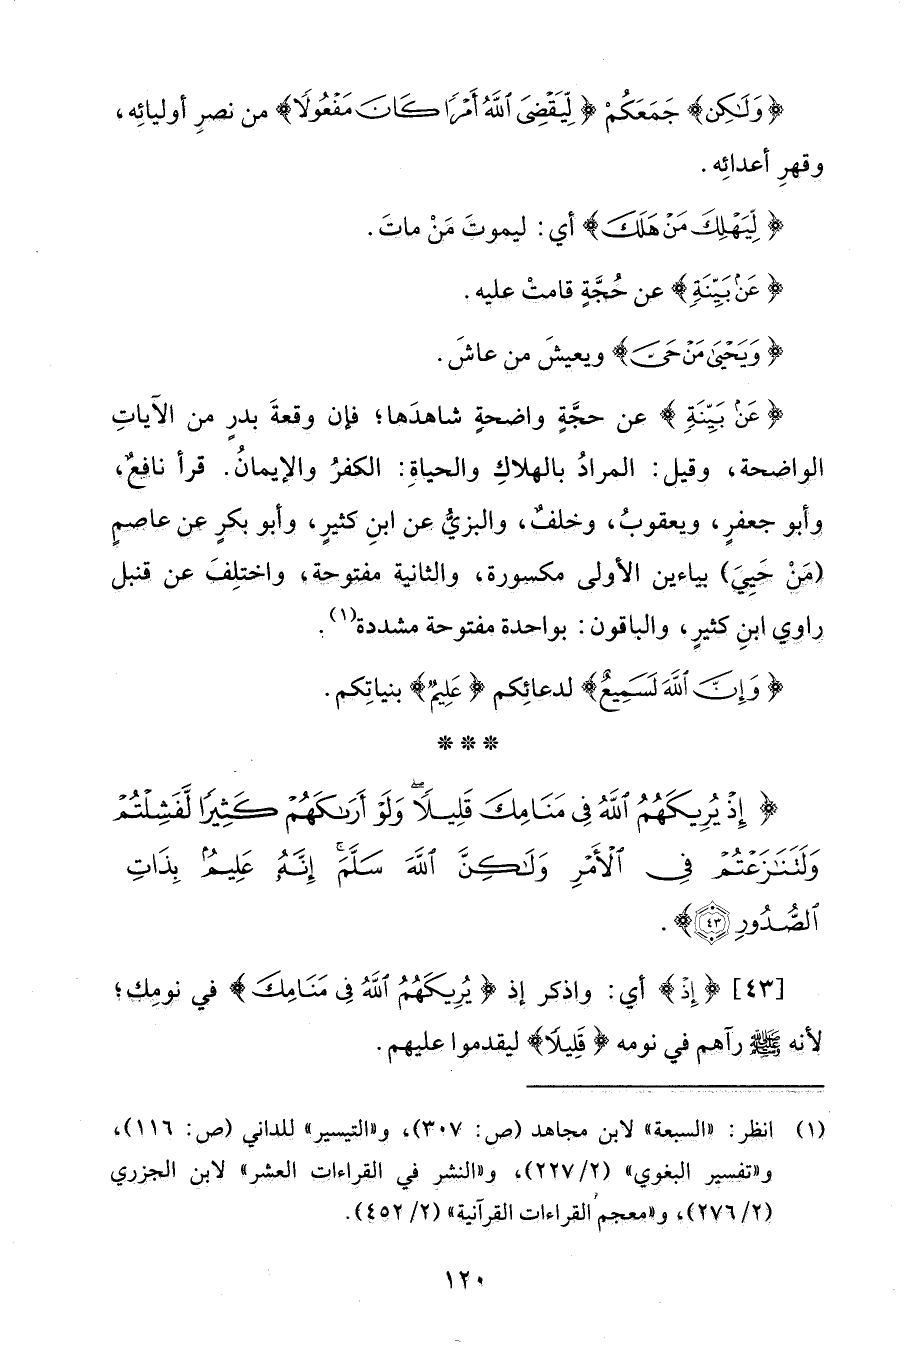 ﴿وَلَٰكِن﴾ جَمَعَكُمْ ﴿لِّيَقْضِيَ ٱللَّهُ أَمْرًا كَانَ مَفْعُولًا﴾ من نصرِ أوليائِه،
وقهرِ أعدائِه.
﴿لِّيَهْلِكَ مَنْ هَلَكَ﴾ أي: ليموتَ مَنْ ماتَ.
﴿عَنۢ بَيِّنَةٍ﴾ عن حُجَّةٍ قامتْ عليه.
﴿وَيَحْيَىٰ مَنْ حَيَّ﴾ ويعيشَ من عاشَ.
﴿عَنۢ بَيِّنَةٍ﴾ عن حجَّةٍ واضحةٍ شاهدَها؛ فإن وقعةَ بدرٍ من الآياتِ
الواضحة، وقيل: المرادُ بالهلاكِ والحياةِ: الكفرُ والإيمانُ. قرأ نافعٌ،
وأبو جعفرٍ، ويعقوبُ، وخلفٌ، والبزيُّ عن ابنِ كثيرٍ، وأبو بكرٍ عن عاصمٍ
(مَنْ حَيِيَ) بياءين الأولى مكسورة، والثانية مفتوحة، واختلِفَ عن قنبل
راوي ابنِ كثيرٍ، والباقون: بواحدة مفتوحة مشددة(١).
﴿وَإِنَّ ٱللَّهَ لَسَمِيعٌ﴾ لدعائِكم ﴿عَلِيمٌ﴾ بنياتِكم.
***
﴿إِذْ يُرِيكَهُمُ ٱللَّهُ فِي مَنَامِكَ قَلِيلًا ۖ وَلَوْ أَرَىٰكَهُمْ كَثِيرًا لَّفَشِلْتُمْ
وَلَتَنَٰزَعْتُمْ فِي ٱلْأَمْرِ وَلَٰكِنَّ ٱللَّهَ سَلَّمَ ۚ إِنَّهُۥ عَلِيمٌۢ بِذَاتِ
ٱلصُّدُورِ ٤٣﴾.
[٤٣] ﴿إِذْ﴾ أي: واذكر إذ ﴿يُرِيكَهُمُ ٱللَّهُ فِي مَنَامِكَ﴾ في نومِك؛
لأنه ﷺ رآهم في نومه ﴿قَلِيلًا﴾ ليقدموا عليهم.
(١) انظر: «السبعة» لابن مجاهد (ص: ٣٠٧)، و«التيسير» للداني (ص: ١١٦)،
و«تفسير البغوي» (٢/ ٢٢٧)، و«النشر في القراءات العشر» لابن الجزري
(٢/ ٢٧٦)، و«معجم القراءات القرآنية» (٢/ ٤٥٢).
١٢٠